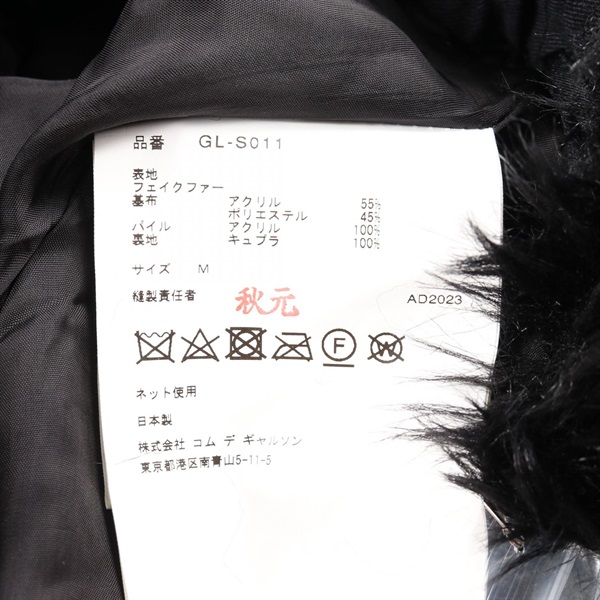 品番 GL-S011
表地
フェイクファー
基布 アクリル 55%
ポリエステル 45%
パイル アクリル 100%
裏地 キュプラ 100%
サイズ M
縫製責任者 秋元 AD2023
F W
ネット使用
日本製
株式会社 コム デ ギャルソン
東京都港区南青山5-11-5